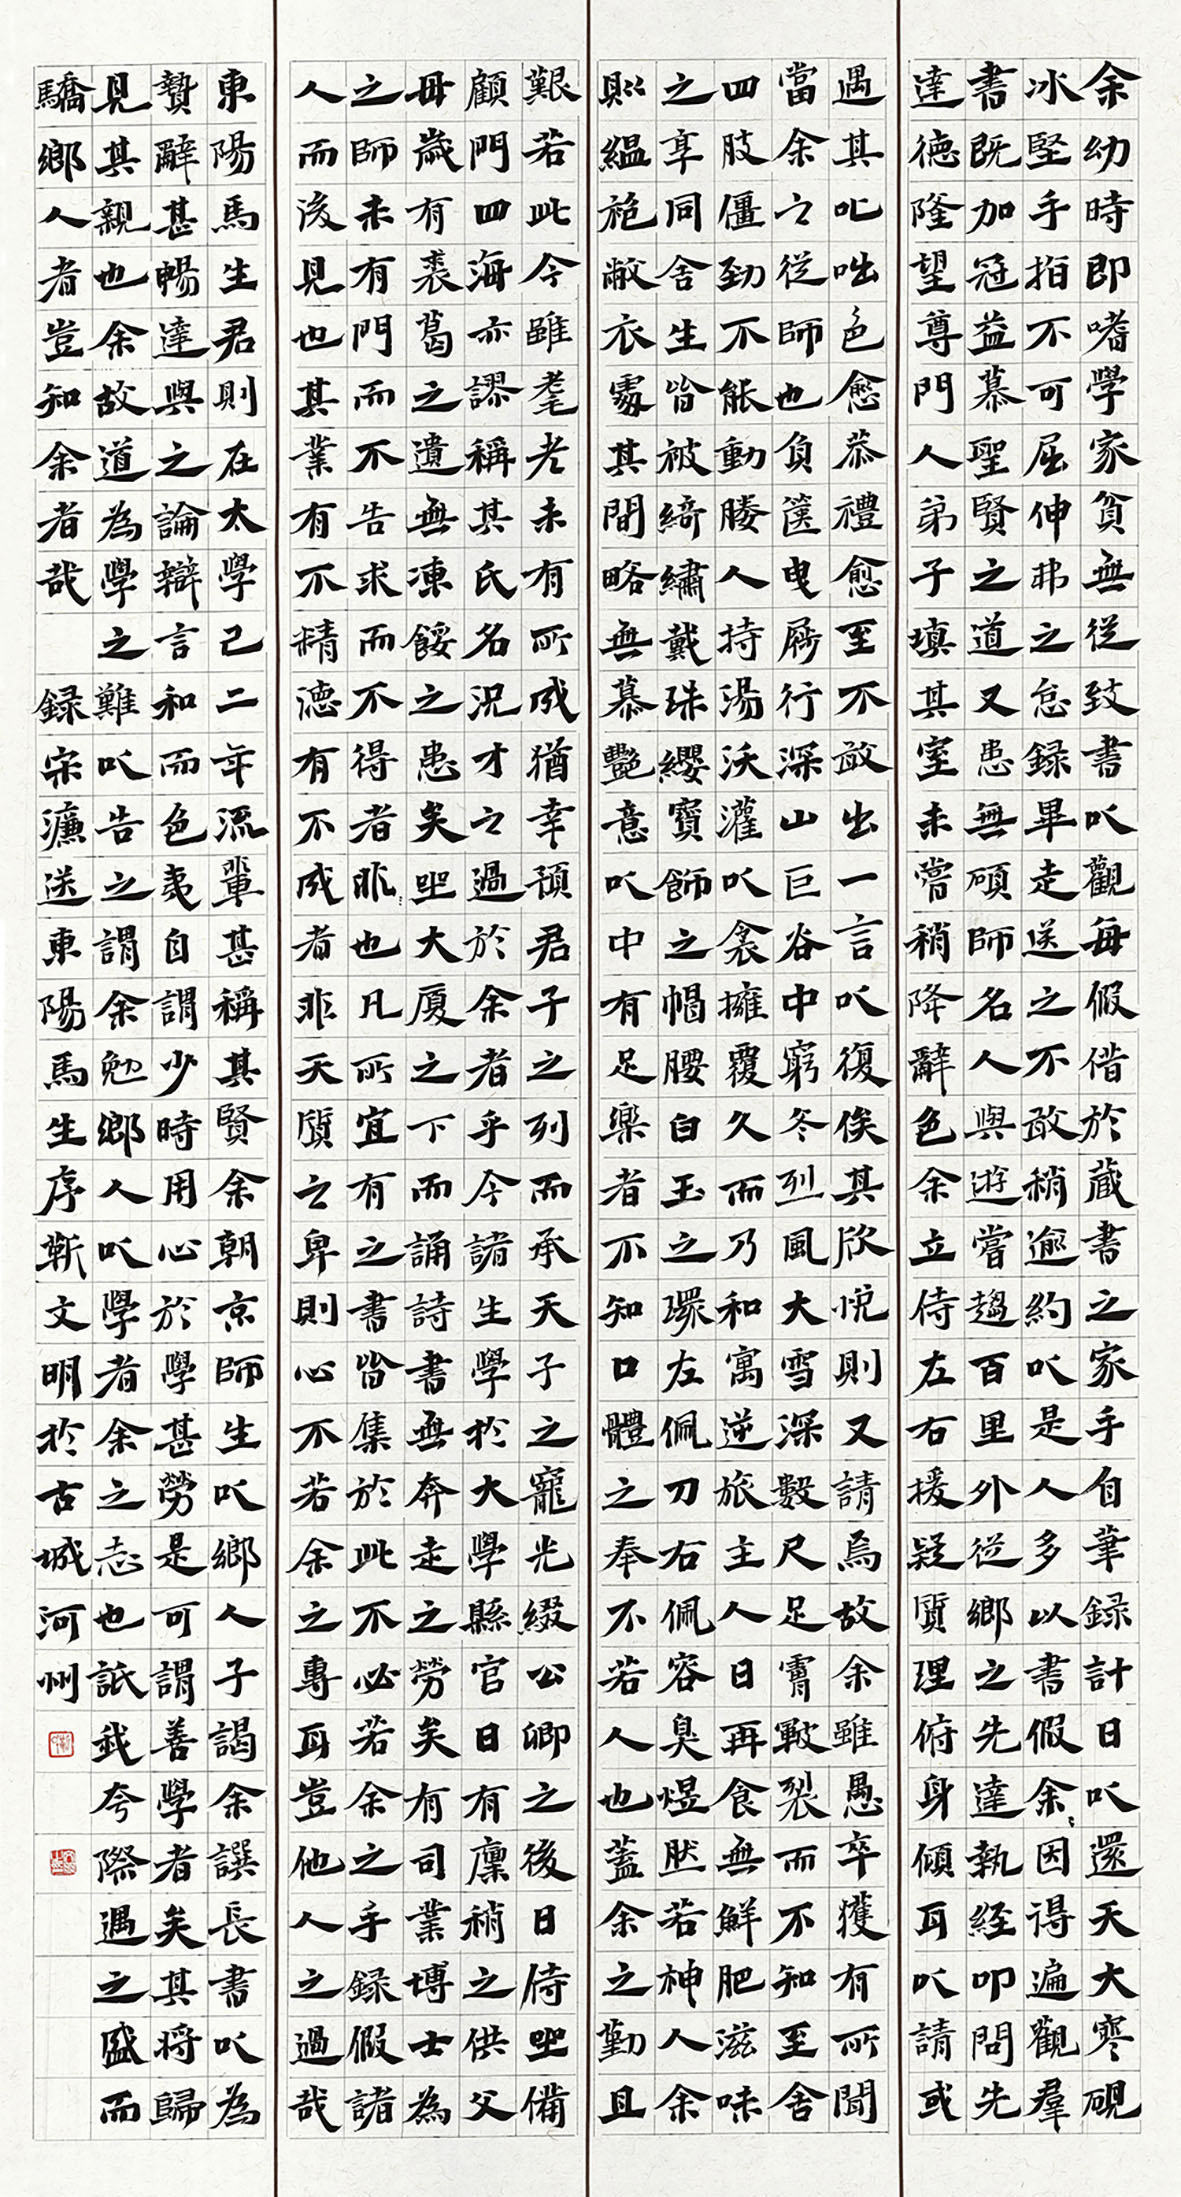 余幼時即嗜學家貧無從致書以觀每假借於藏書之家手自筆錄計日以還天大寒硯
冰堅手指不可屈伸弗之怠錄畢走送之不敢稍逾約以是人多以書假余〻因得遍觀羣
書既加冠益慕聖賢之道又患無碩師名人與遊嘗趨百里外從鄉之先達執經叩問先
達德隆望尊門人弟子填其室未嘗稍降辭色余立侍左右援疑質理俯身傾耳以請或
遇其叱咄色愈恭禮愈至不敢出一言以復俟其欣悅則又請焉故余雖愚卒獲有所聞
當余之從師也負篋曳屣行深山巨谷中窮冬烈風大雪深數尺足膚皸裂而不知至舍
四肢僵勁不能動媵人持湯沃灌以衾擁覆久而乃和寓逆旅主人日再食無鮮肥滋味
之享同舍生皆被綺繡戴珠纓寶飾之帽腰白玉之環左佩刀右佩容臭煜然若神人余
則縕袍敝衣處其間略無慕艷意以中有足樂者不知口體之奉不若人也蓋余之勤且
艱若此今雖耄老未有所成猶幸預君子之列而承天子之寵光綴公卿之後日侍坐備
顧門四海亦謬稱其氏名況才之過於余者乎今諸生學於大學縣官日有廩稍之供父
毋歲有裘葛之遺無凍餒之患矣坐大廈之下而誦詩書無奔走之勞矣有司業博士為
之師未有門而不告求而不得者非也凡所宜有之書皆集於此不必若余之手錄假諸
人而後見也其業有不精德有不成者非天質之卑則心不若余之專耳豈他人之過哉
東陽馬生君則在太學已二年流輩甚稱其賢余朝京師生以鄉人子謁余譔長書以為
贄辭甚暢達與之論辯言和而色夷自謂少時用心於學甚勞是可謂善學者矣其將歸
見其親也余故道為學之難以告之謂余勉鄉人以學者余之志也詆我夸際遇之盛而
驕鄉人者豈知余者哉 錄宋濂送東陽馬生序靳文明於古城河州